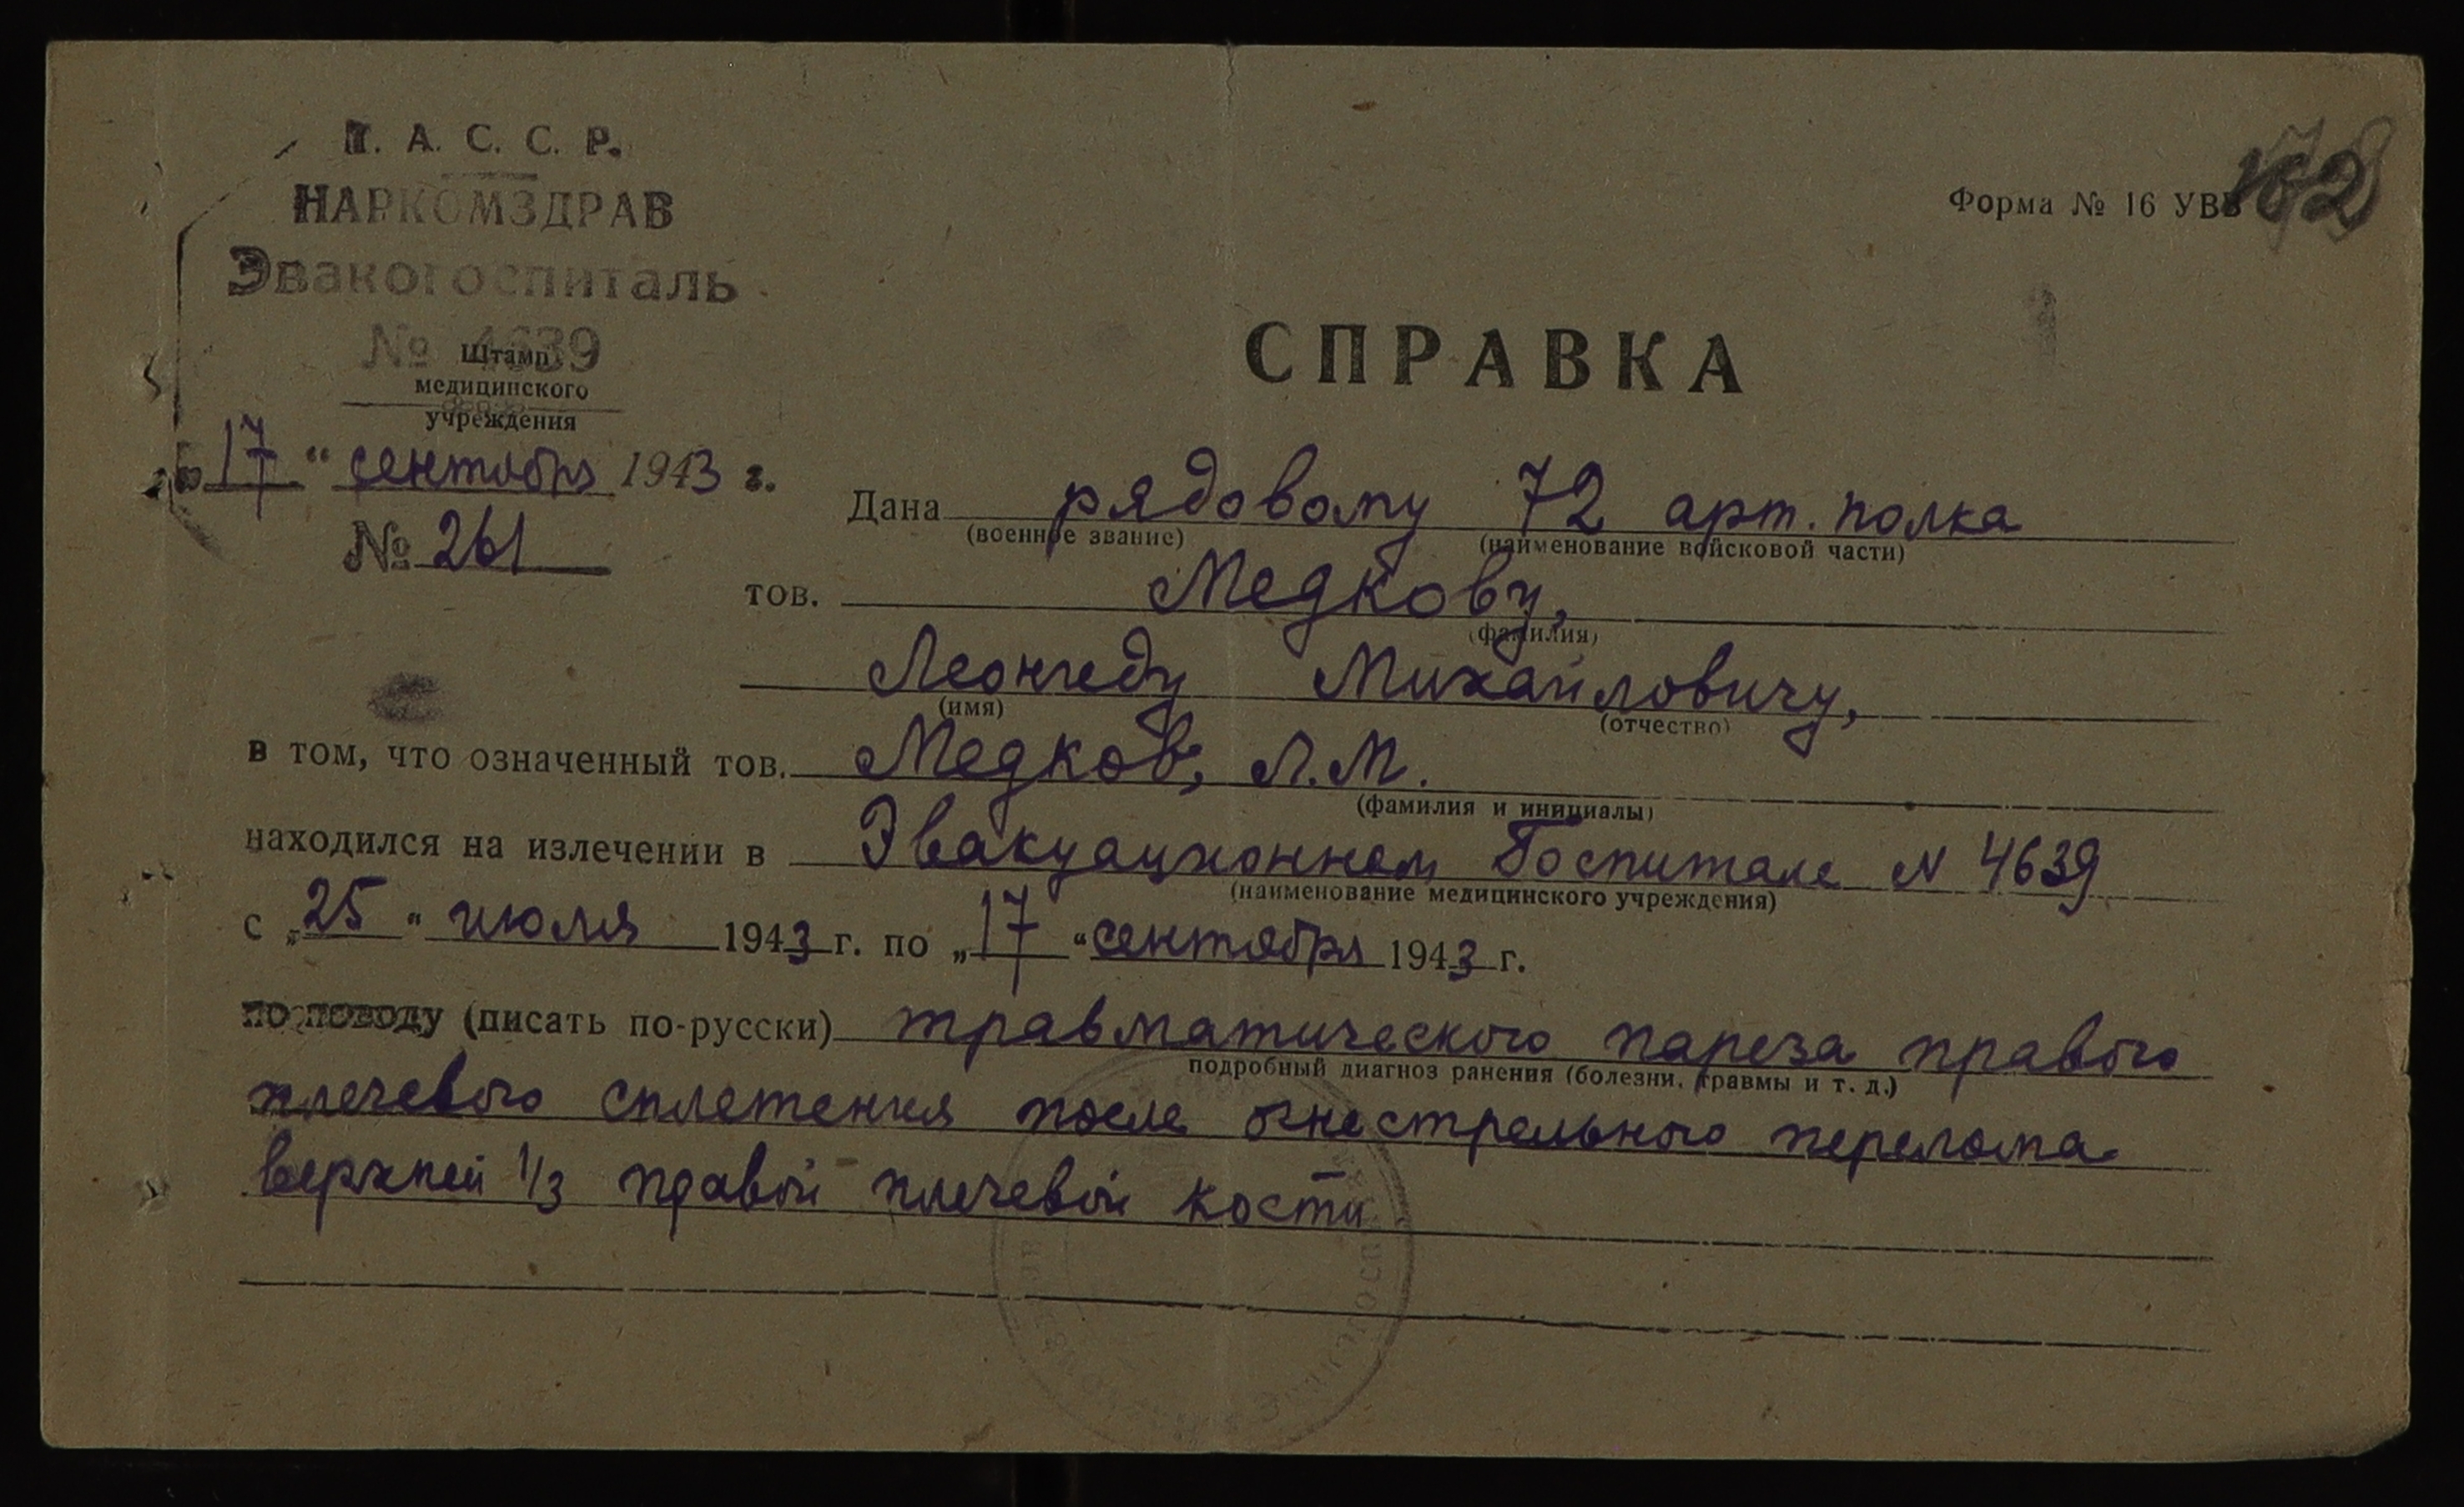 Т. А. С. С. Р.
НАРКОМЗДРАВ
Эвакогоспиталь
№ 4639
Штамп
медицинского
учреждения
„17“ сентября 1943 г.
№ 261
Форма № 16 УВВ
162
СПРАВКА
Дана рядовому 72 арт. полка
(военное звание) (наименование войсковой части)
тов. Медкову,
(фамилия)
Леониду Михайловичу,
(имя) (отчество)
в том, что означенный тов. Медков, Л.М.
(фамилия и инициалы)
находился на излечении в Эвакуационном Госпитале N 4639
(наименование медицинского учреждения)
с „25“ июля 1943 г. по „17“ сентября 1943 г.
по поводу (писать по-русски) травматического пареза правого
подробный диагноз ранения (болезни, травмы и т. д.)
плечевого сплетения после огнестрельного перелома
верхней 1/3 правой плечевой кости